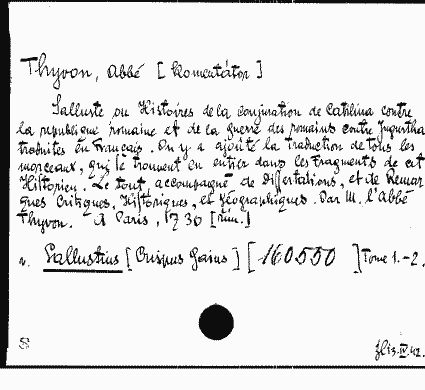 Thyvon, Abbé [Komentátor]
Salluste ou Histoires de la conjuration de Catilina contre
la république romaine et de la guerre des romains contre Jugurtha
traduites en Français. On y a ajouté la traduction de tous les
morceaux, qui se trouvent en entier dans les Fragments de cet
Historien. Le tout accompagné de Dissertations, et de Remar
ques Critiques, Historiques, et Géographiques. Par M. l'Abbé
Thyvon. A Paris, 1730
v. Sallustius [Crispus Gaius] [160550] Tome 1.-2.
S
IV.42.